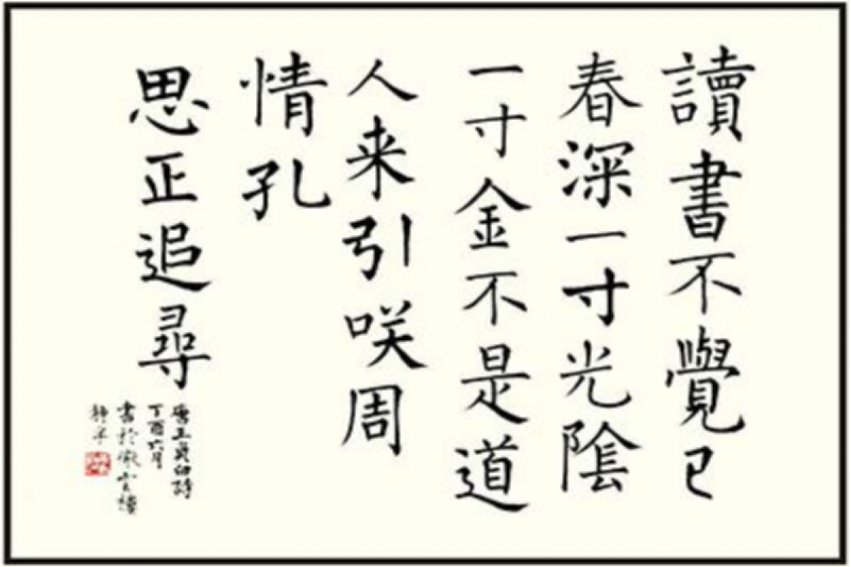 讀書不覺已
春深一寸光陰
一寸金不是道
人来引咲周
情孔
思正追尋
唐王貞白詩
丁酉六月
書於雲樓